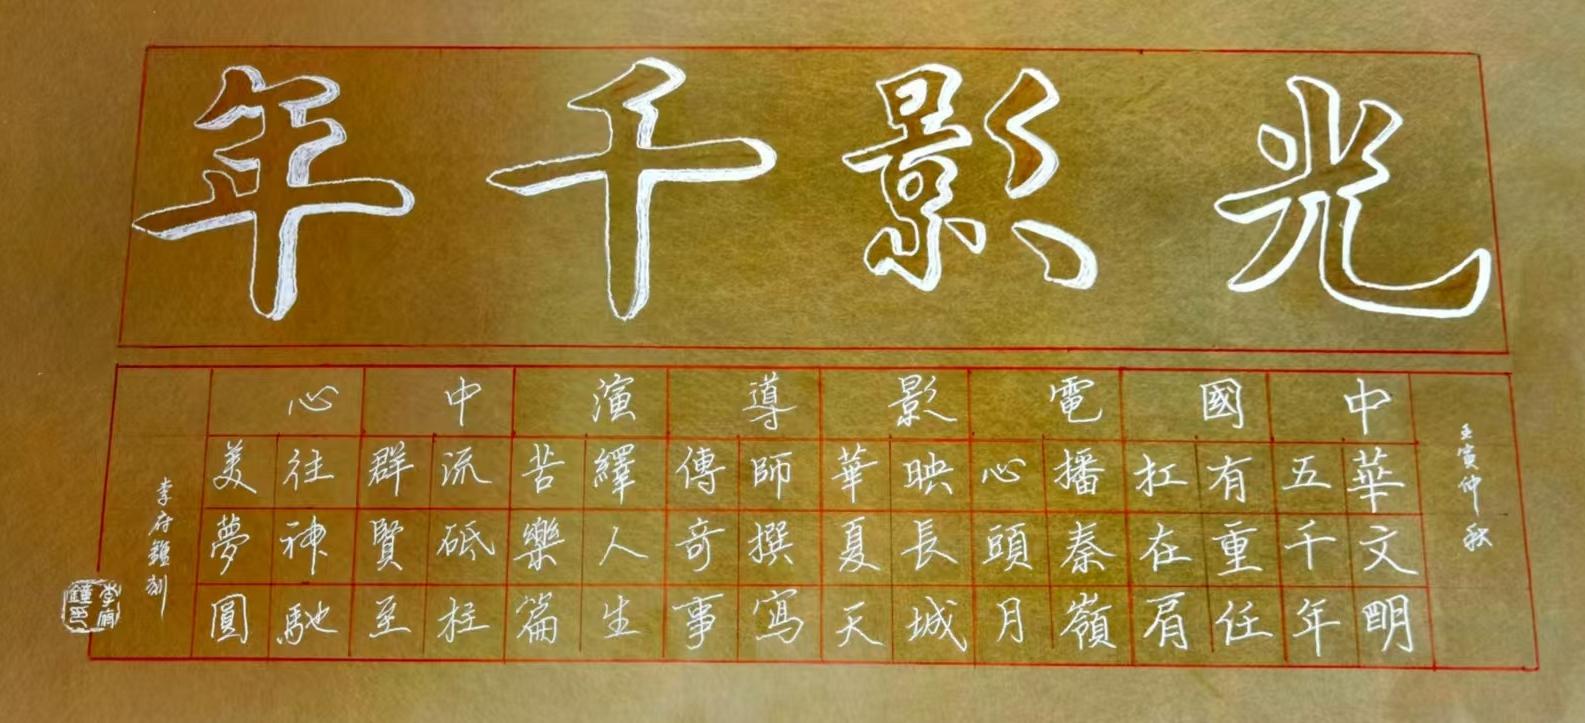 光影千年
壬寅仲秋
中華文明
五千年
國有重任
扛在肩
電播秦嶺
心頭月
影映長城
華夏天
導師撰寫
傳奇事
演繹人生
苦樂篇
中流砥柱
群賢至
心往神馳
美夢圓
李府刻
李府印